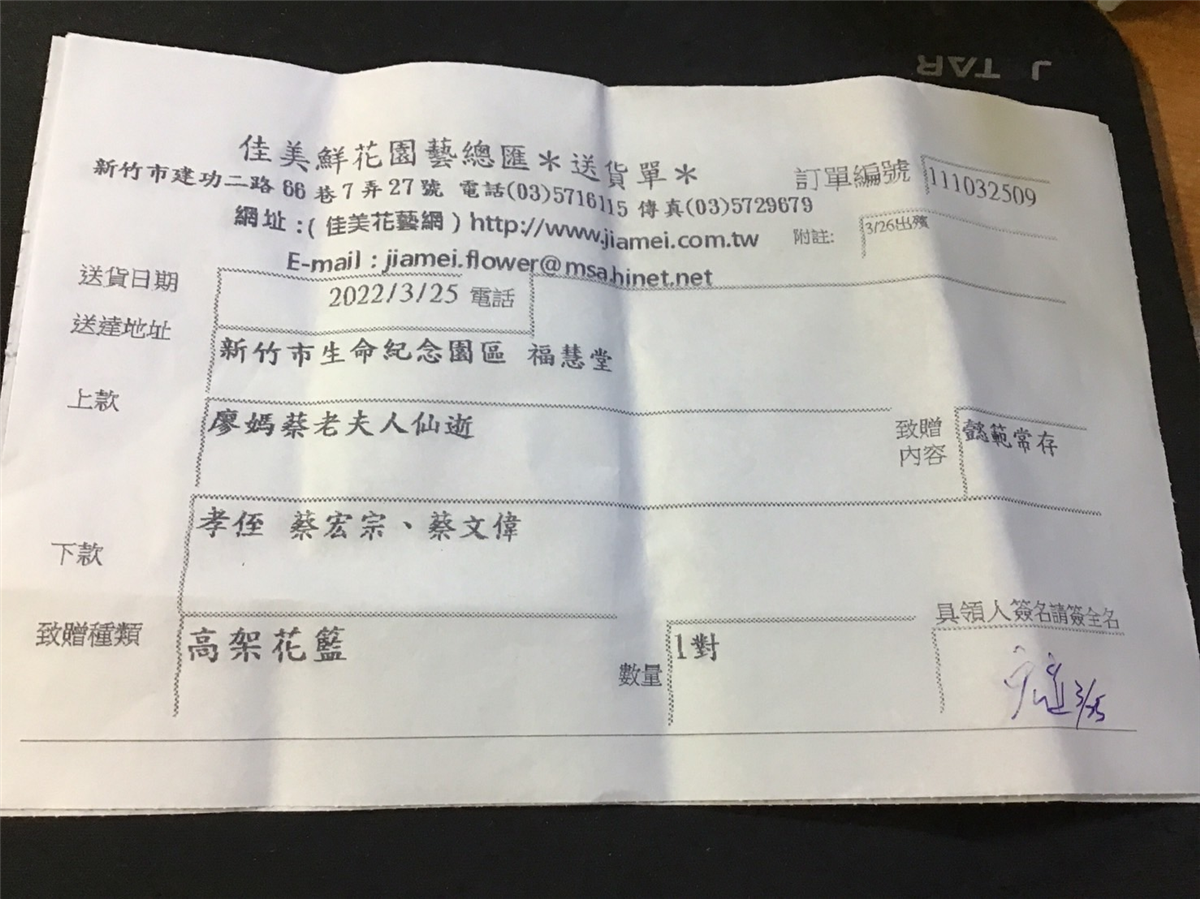 J TAR
佳美鮮花園藝總匯＊送貨單＊
訂單編號 111032509
新竹市建功二路66巷7弄27號 電話(03)5716115 傳真(03)5729679
網址:(佳美花藝網)http://www.jiamei.com.tw
附註: 3/26出殯
E-mail : jiamei.flower@msa.hinet.net
送貨日期 2022/3/25 電話
送達地址 新竹市生命紀念園區 福慧堂
上款 廖媽蔡老夫人仙逝
致贈內容 懿範常存
下款 孝侄 蔡宏宗、蔡文偉
致贈種類 高架花籃
數量 1對
具領人簽名請簽全名
3/25